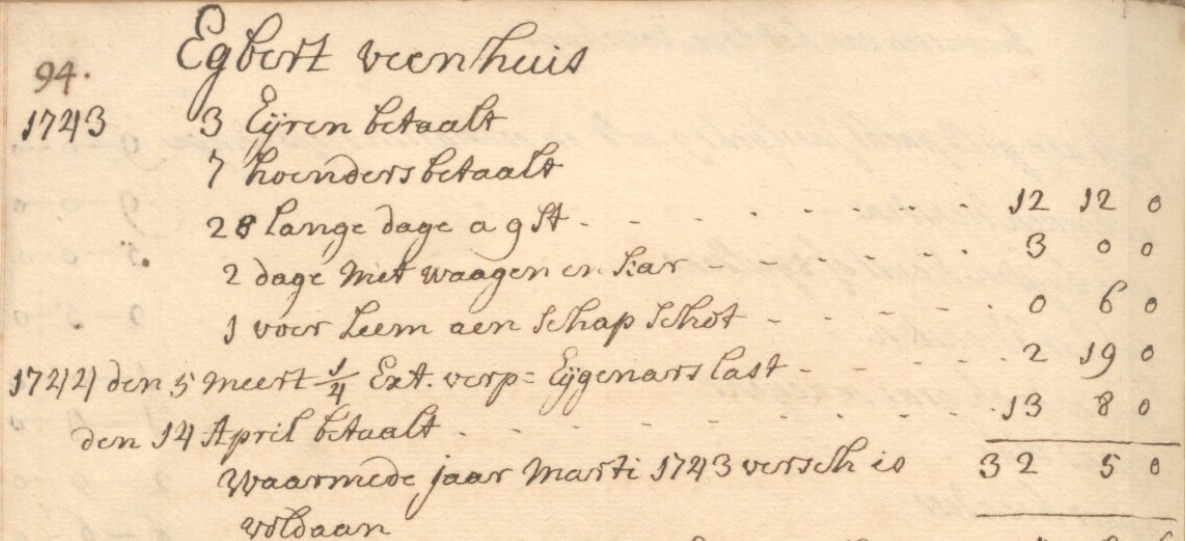 94. Egbert veenhuis
1743 3 Eijren betaalt
7 hoenders betaalt
28 lange dage a 9 st - - - - - - 12 12 0
2 dage met waagen en kar - - - - - 3 0 0
1 voer Leem aen schap schot - - - - 0 6 0
1744 den 5 meert 1/4 Ext. verp= Eijgenars last - - - - 2 19 0
den 14 April betaalt - - - - - - 13 8 0
Waarmede jaar Marti 1743 versch is 32 5 0
voldaan